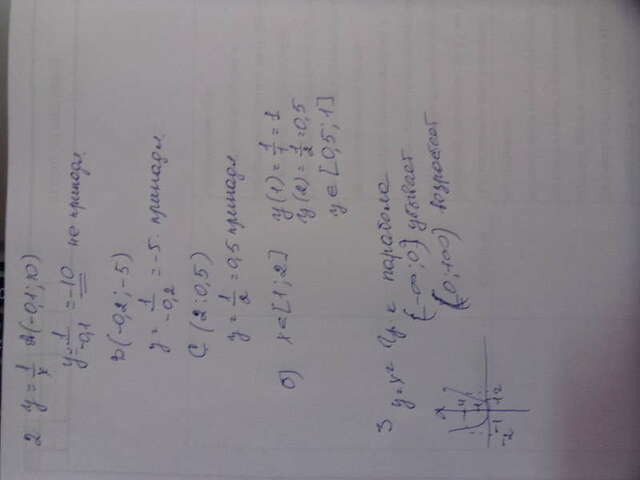 2 y = 1/x А(-0,1; 10)
y = 1/-0,1 = -10 не принадл.
B(-0,2; -5)
y = 1/-0,2 = -5 принадл.
C (2; 0,5)
y = 1/2 = 0,5 принадл
б) x ∈ [1; 2] y(1) = 1/1 = 1
y(2) = 1/2 = 0,5
y ∈ [0,5; 1]
3 y = x² парабола
(-∞; 0] убывает
[0; +∞) возрастает